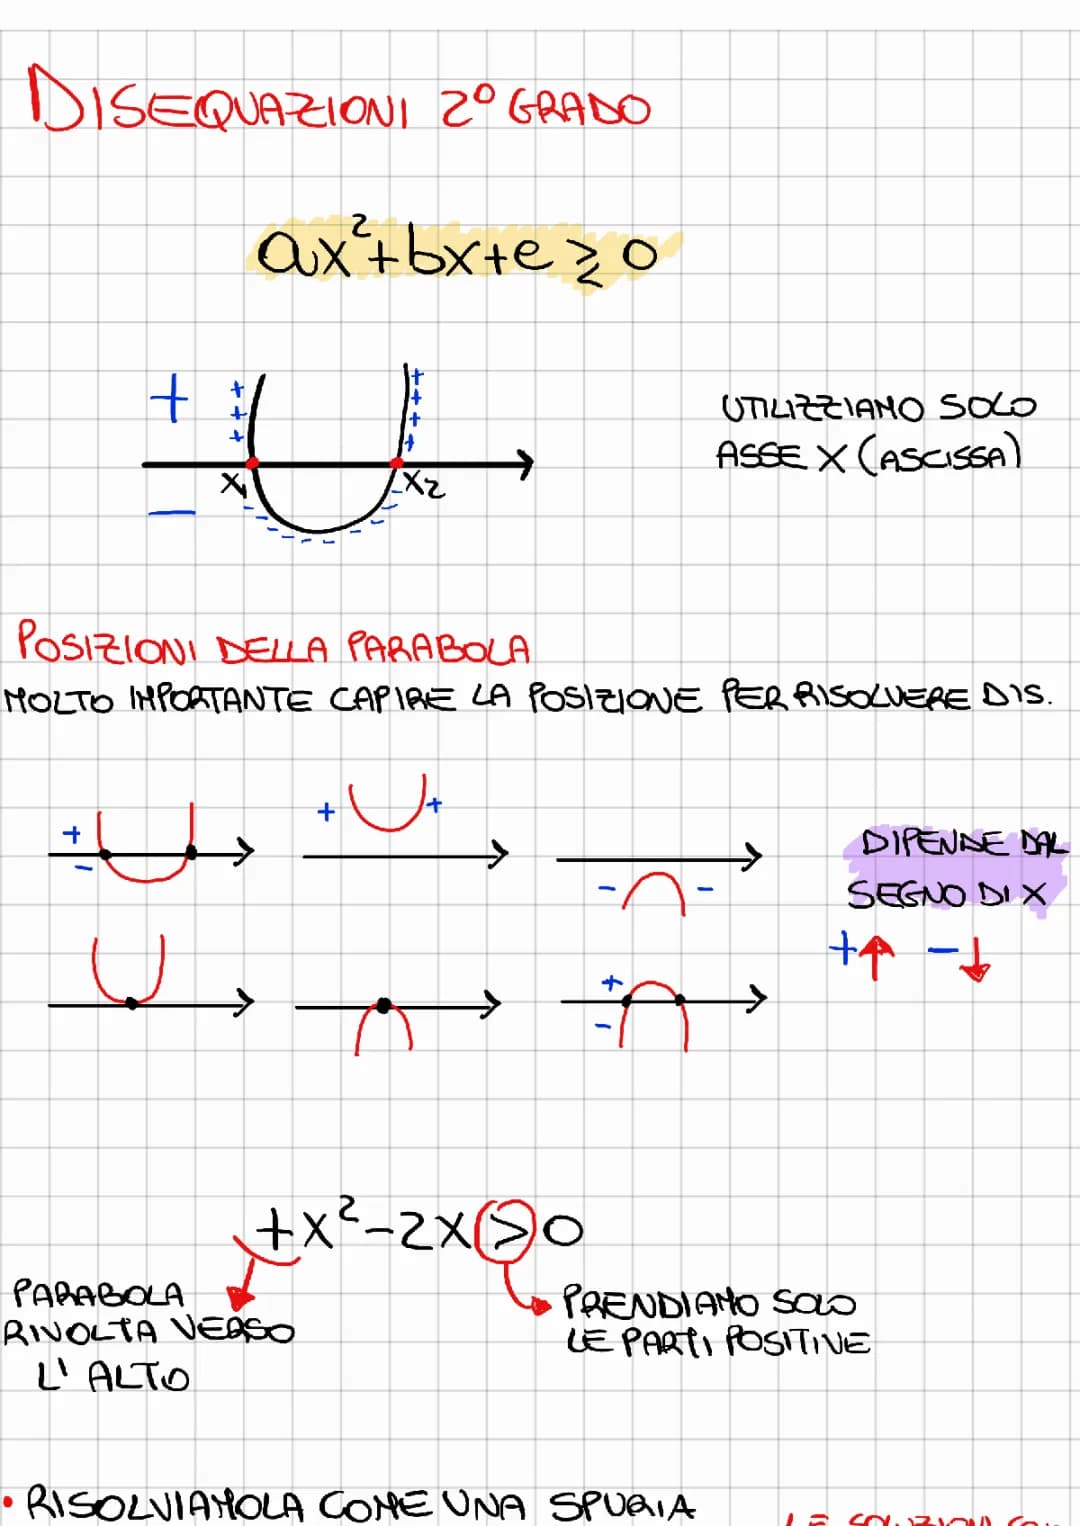 DISEQUAZIONI 2° GRADO
ax²+bx+e ≥ 0
+
+ + +
+ + + +
UTILIZZIAMO SOLO
ASSE X (ASCISSA)
x₁
x₂
−
POSIZIONI DELLA PARABOLA
MOLTO IMPORTANTE CAPIRE LA POSIZIONE PER RISOLVERE DIS.
+ −
+ +
− −
DIPENDE DAL
SEGNO DI X
+↑ −↓
+ −
+x²-2x>0
PARABOLA
RIVOLTA VERSO
L' ALTO
PRENDIAMO SOLO
LE PARTI POSITIVE
• RISOLVIAMOLA COME UNA SPURIA
LE SOLUZIONI